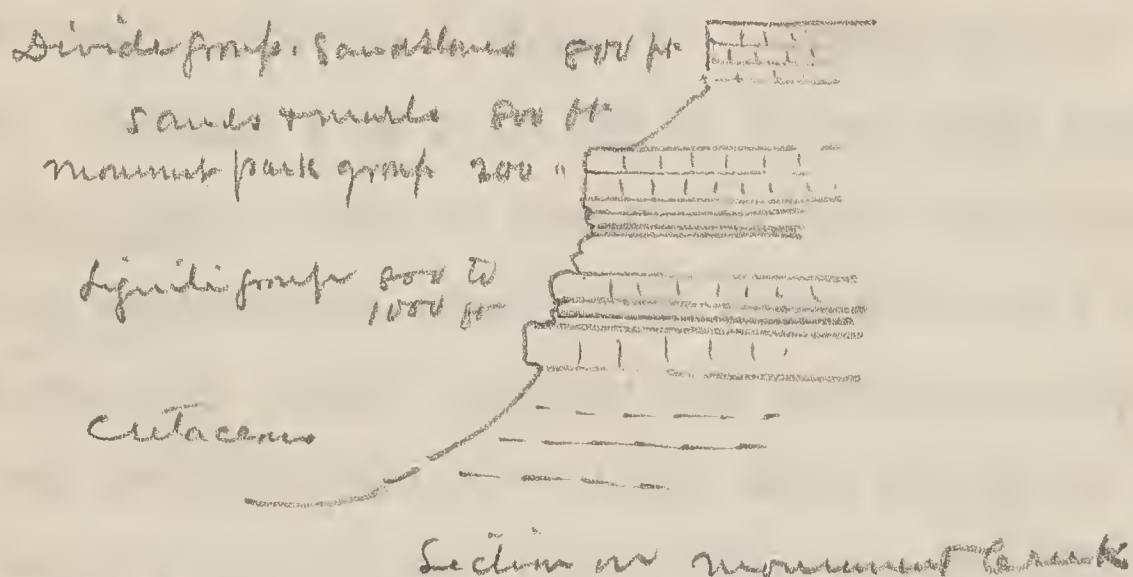 Divide group. Sandstone 800 ft
Sands & marls 800 ft
Monument park group 200 "
Lignitic group 800 to
1000 ft
Cretaceous
Section on Monument Creek